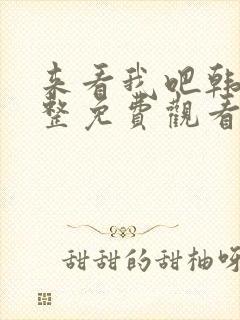 来看我吧韩
整免费觀看
甜甜的甜柚呀